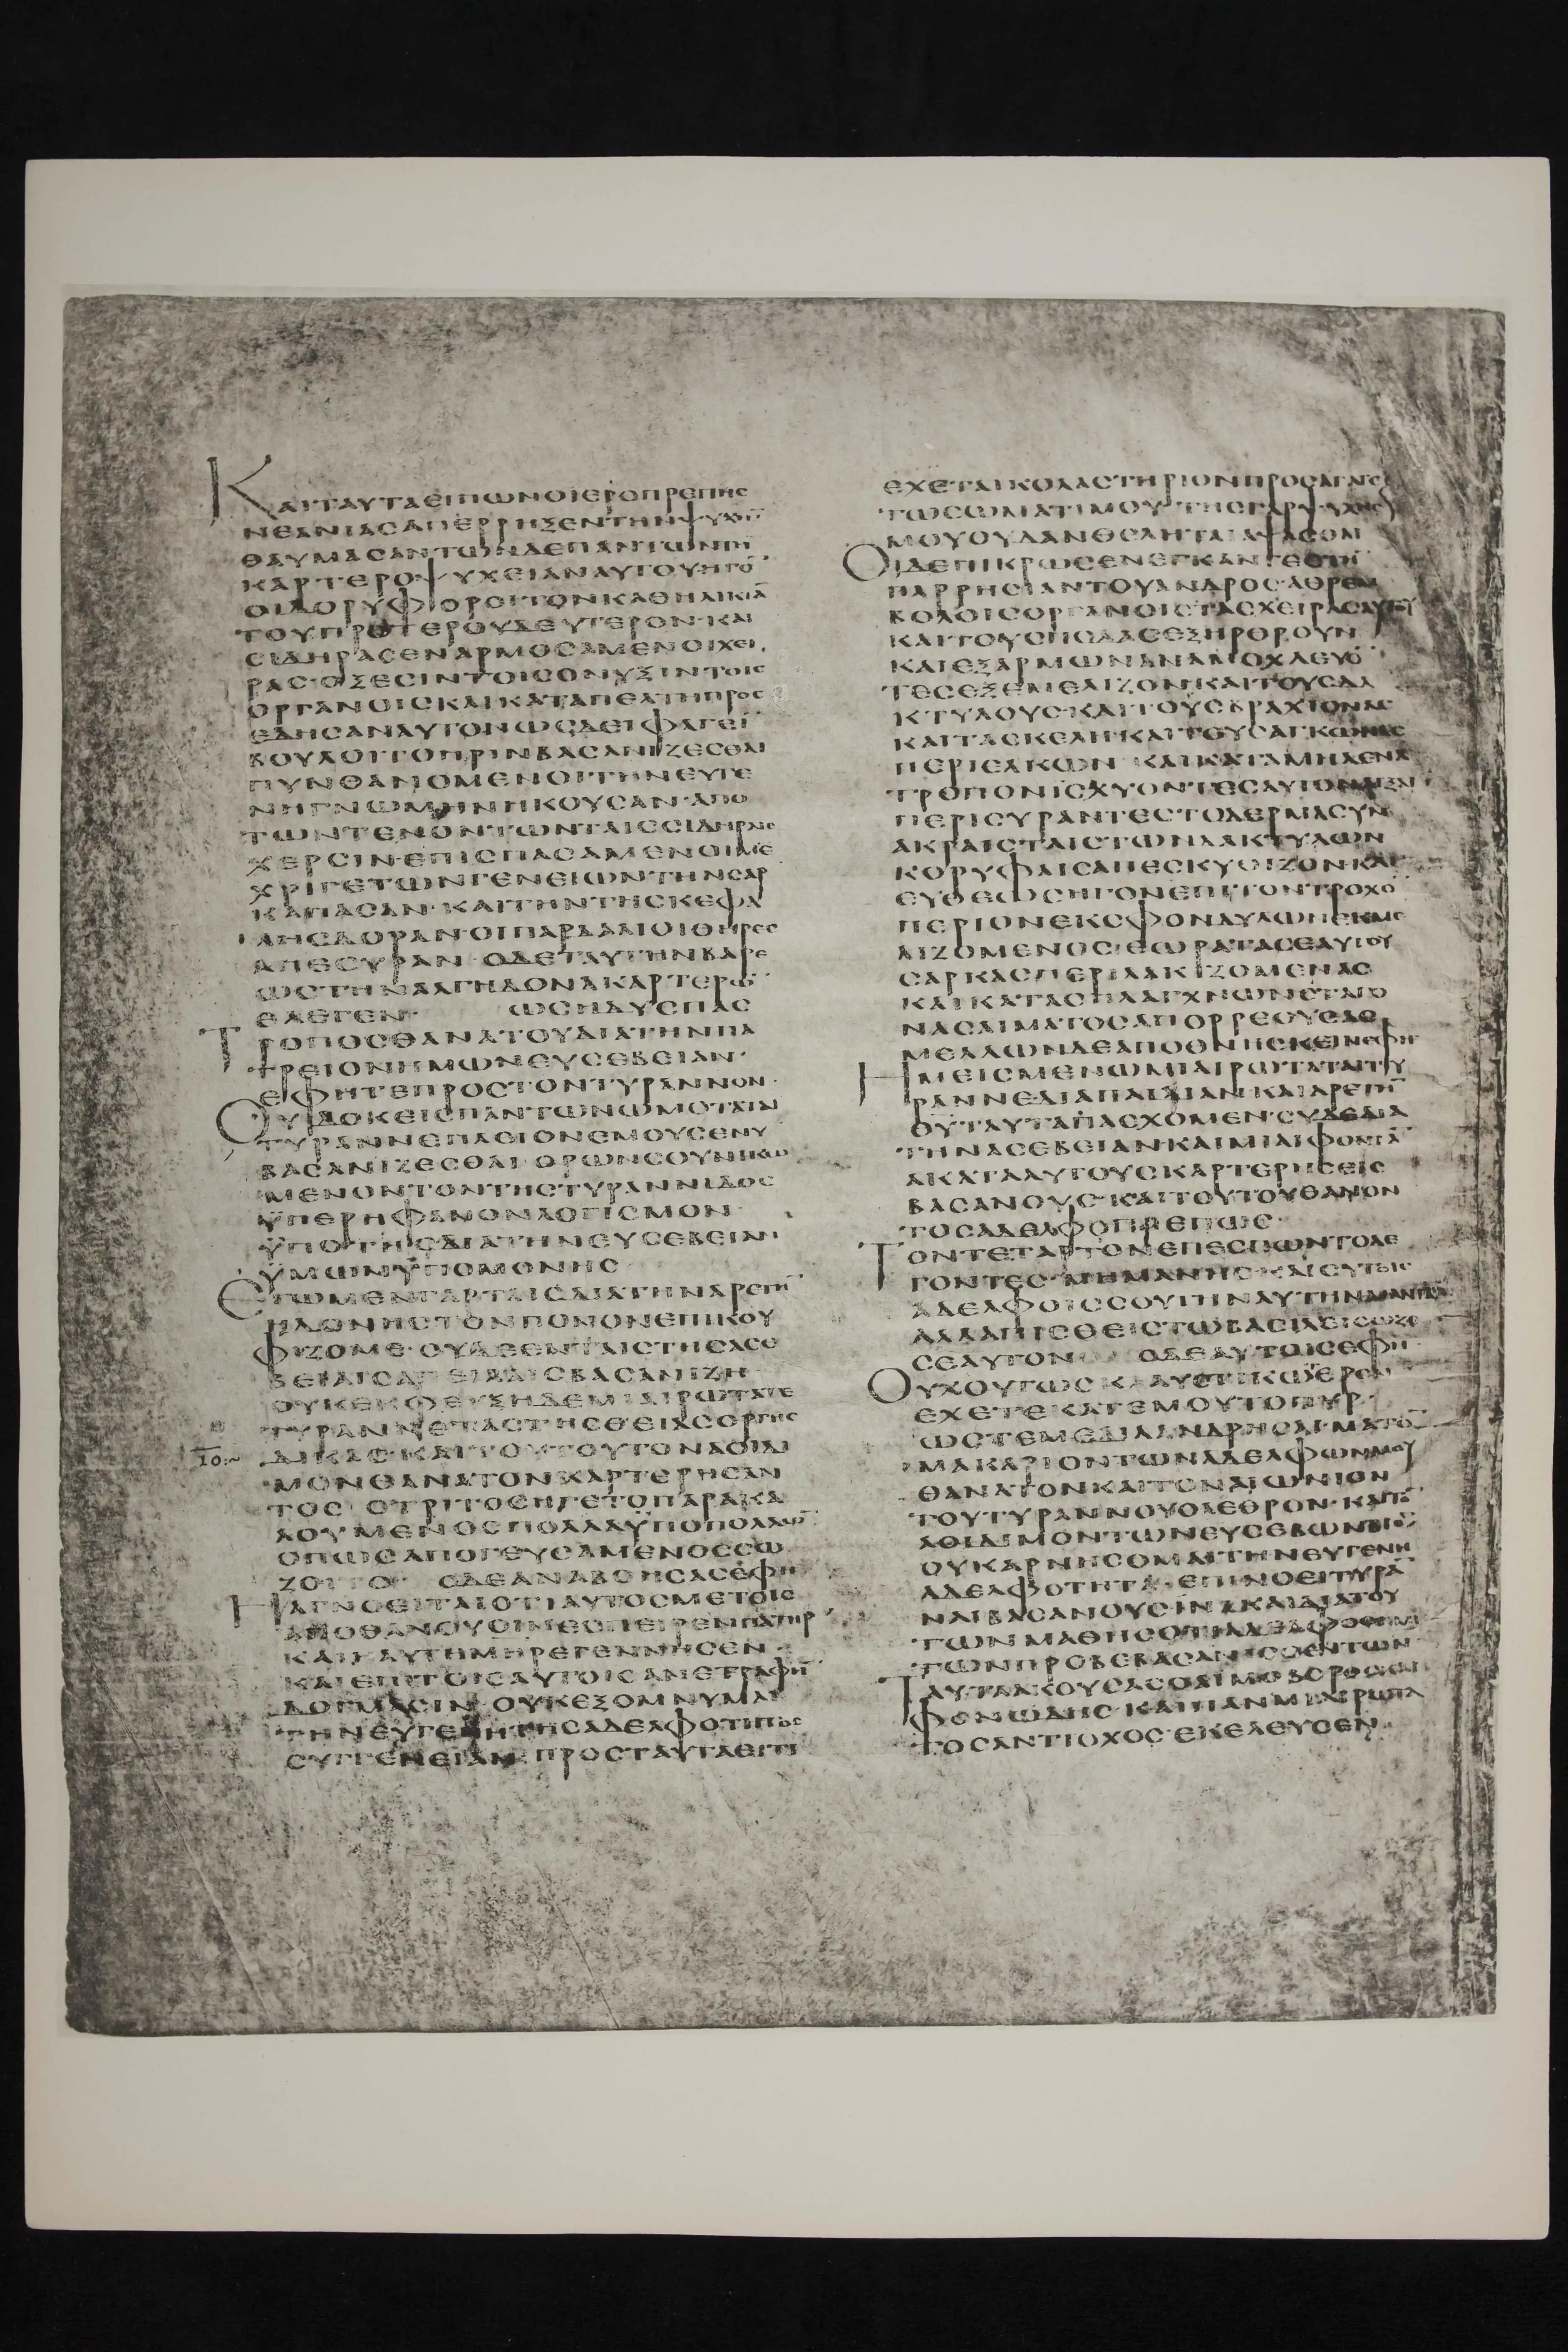 ΚΑΙΤΑΥΤΑΕΙΠΩΝΟΙΕΡΟΠΡΕΠΗC
ΝΕΑΝΙΑCΑΠΕΡΡΗΞΕΝΤΗΝΨΥΧΗ̅
ΘΑΥΜΑCΑΝΤΩΝΔΕΠΑΝΤΩΝΤΗ̅
ΚΑΡΤΕΡΟΨΥΧΕΙΑΝΑΥΤΟΥΗΓΟ̅
ΟΙΔΟΡΥΦΟΡΟΙΤΟΝΚΑΘΗΛΙΚΙΑ̅
ΤΟΥΠΡΟΤΕΡΟΥΔΕΥΤΕΡΟΝ·ΚΑΙ
CΙΔΗΡΑCΕΝΑΡΜΟCΑΜΕΝΟΙΧΕΙ
ΡΑC·ΟΞΕCΙΝΤΟΙCΟΝΥΞΙΝΤΟΙC
ΟΡΓΑΝΟΙCΚΑΙΚΑΤΑΠΕΛΤΗΠΡΟC
ΕΔΗCΑΝΑΥΤΟΝΩCΔΕΙΦΑΓΕΙ̅
ΒΟΥΛΟΙΤΟΠΡΙΝΒΑCΑΝΙΖΕCΘΑΙ
ΠΥΝΘΑΝΟΜΕΝΟΙΤΗΝΕΥΓΕ
ΝΗΓΝΩΜΗΝΗΚΟΥCΑΝ·ΑΠΟ
ΤΩΝΤΕΝΟΝΤΩΝΤΑΙCCΙΔΗΡΑΙC
ΧΕΡCΙΝΕΠΙCΠΑCΑΜΕΝΟΙΜΕ
ΧΡΙΓΕΤΩΝΓΕΝΕΙΩΝΤΗΝCΑΡ
ΚΑΠΑCΑΝ·ΚΑΙΤΗΝΤΗCΚΕΦΑ
ΛΗCΔΟΡΑΝ·ΟΙΠΑΡΔΑΛΙΟΙΘΗΡΕC
ΑΠΕCΥΡΑΝ·ΟΔΕΤΑΥΤΗΝΒΑΡΕ
ΩCΤΗΝΑΛΓΗΔΟΝΑΚΑΡΤΕΡΩ̅
ΕΛΕΓΕΝ· ΩCΗΔΥCΠΑC
ΤΡΟΠΟCΘΑΝΑΤΟΥΔΙΑΤΗΝΠΑ
ΤΡΕΙΟΝΗΜΩΝΕΥCΕΒΕΙΑΝ·
ΕΦΗΤΕΠΡΟCΤΟΝΤΥΡΑΝΝΟΝ·
ΟΥΔΟΚΕΙCΠΑΝΤΩΝΩΜΟΤΑΤΑΙ
ΤΥΡΑΝΝΕΠΛΕΙΟΝΕΜΟΥCΕΝΥ
ΒΑCΑΝΙΖΕCΘΑΙ·ΟΡΩΝCΟΥΝΙΚΩ
ΜΕΝΟΝΤΟΝΤΗCΤΥΡΑΝΝΙΔΟC
ΫΠΕΡΗΦΑΝΟΝΛΟΓΙCΜΟΝ
ΫΠΟΤΗCΔΙΑΤΗΝΕΥCΕΒΕΙΑΝ
ΫΜΩΝΫΠΟΜΟΝΗC
ΕΓΩΜΕΝΓΑΡΤΑΙCΔΙΑΤΗΝΑΡΕΤΗ̅
ΗΔΟΝΗCΤΟΝΠΟΝΟΝΕΠΙΚΟΥ
ΦΙΖΟΜΕ·CΥΔΕΕΝΤΑΙCΤΗCΑCΕ
ΒΕΙΑCΑΠΕΙΛΑΙCΒΑCΑΝΙΖΗ
ΟΥΚΕΚΦΕΥΞΗΔΕΜΙΑΙΡΩΤΑΤΕ
ΤΥΡΑΝΝΕΤΑCΤΗCΘΕΙΑCΟΡΓΗC
ΔΙΚΑC·ΚΑΙΤΟΥΤΟΥΤΟΝΑΟΙΔΙ
ΙΟ
ΜΟΝΘΑΝΑΤΟΝΚΑΡΤΕΡΗCΑΝ
ΤΟC·ΟΤΡΙΤΟCΗΓΕΤΟΠΑΡΑΚΑ
ΛΟΥΜΕΝΟCΠΟΛΛΑΫΠΟΠΟΛΛΩ̅
ΟΠΩCΑΠΟΓΕΥCΑΜΕΝΟCCΩ
ΖΟΙΤΟ ΟΔΕΑΝΑΒΟΗCΑCΕΦΗ
ΗΑΓΝΟΕΙΤΑΙΟΤΙΑΥΤΟCΜΕΤΟΙC
ΑΠΟΘΑΝΟΥCΙΝΕCΠΕΙΡΕΝΠΑΤΗΡ
ΚΑΙΗΑΥΤΗΜΗΡΕΓΕΝΝΗCΕΝ·
ΚΑΙΕΠΙΤΟΙCΑΥΤΟΙCΑΝΕΤΡΑΦΗ̅
ΔΟΓΜΑCΙΝ·ΟΥΚΕΞΟΜΝΥΜΑΙ
ΤΗΝΕΥΓΕΝΗΤΗCΑΔΕΛΦΟΤΗΤΟC
CΥΓΓΕΝΕΙΑΝ·ΠΡΟCΤΑΥΤΑΕΙΤΙ
ΕΧΕΤΑΙΚΟΛΑCΤΗΡΙΟΝΠΡΟCΑΓΑΓΕ
ΤΩCΩΜΑΤΙΜΟΥ·ΤΗCΓΑΡΨΥΧΗC
ΜΟΥΟΥΔΑΝΘΕΛΗΤΑΙΑΨΑCΘΑΙ
ΟΙΔΕΠΙΚΡΩCΕΝΕΓΚΑΝΤΕCΤΗ̅
ΠΑΡΡΗCΙΑΝΤΟΥΑΝΔΡΟC·ΑΘΡΕΜ
ΒΟΛΟΙCΟΡΓΑΝΟΙCΤΑCΧΕΙΡΑCΑΥΤΟΥ
ΚΑΙΤΟΥCΠΟΔΑCΕΞΗΡΘΡΟΥΝ
ΚΑΙΕΞΑΡΜΩΝΑΝΑΜΟΧΛΕΥΟ̅
ΤΕCΕΞΕΜΕΛΙΖΟΝ·ΚΑΙΤΟΥCΔΑ
ΚΤΥΛΟΥC·ΚΑΙΤΟΥCΒΡΑΧΙΟΝΑC
ΚΑΙΤΑCΚΕΛΗ·ΚΑΙΤΟΥCΑΓΚΩΝΑC
ΠΕΡΙΕΚΛΩΝ ΚΑΙΚΑΤΑΜΗΔΕΝΑ
ΤΡΟΠΟΝΙCΧΥΟΝΤΕCΑΥΤΟΝΑΓΞΑΙ
ΠΕΡΙCΥΡΑΝΤΕCΤΟΔΕΡΜΑCΥΝ
ΑΚΡΑΙCΤΑΙCΤΩΝΔΑΚΤΥΛΩΝ
ΚΟΡΥΦΑΙCΑΠΕCΚΥΘΙΖΟΝ·ΚΑΙ
ΕΥΘΕΩCΗΓΟΝΕΠΙΤΟΝΤΡΟΧΟ̅
ΠΕΡΙΟΝΕΚCΦΟΝΔΥΛΩΝΕΚΜΕ
ΛΙΖΟΜΕΝΟCΕΩΡΑΤΑCΕΑΥΤΟΥ
CΑΡΚΑCΠΕΡΙΛΑΚΙΖΟΜΕΝΑC
ΚΑΙΚΑΤΑCΠΛΑΓΧΝΩΝCΤΑΓΟ
ΝΑCΑΙΜΑΤΟCΑΠΟΡΡΕΟΥCΑC
ΜΕΛΛΩΝΔΕΑΠΟΘΝΗCΚΕΙΝΕΦΗ
ΗΜΕΙCΜΕΝΩΜΙΑΙΡΩΤΑΤΑΙΤΥ
ΡΑΝΝΕΔΙΑΠΑΙΔΙΑΝ·ΚΑΙΑΡΕΤΗ̅
ΘΥΤΑΥΤΑΠΑCΧΟΜΕΝ·CΥΔΕΔΙΑ
ΤΗΝΑCΕΒΕΙΑΝΚΑΙΜΙΑΙΦΟΝΙΑ̅
ΑΚΑΤΑΛΥΤΟΥCΚΑΡΤΕΡΗCΕΙC
ΒΑCΑΝΟΥC·ΚΑΙΤΟΥΤΟΥΘΑΝΟΝ
ΤΟCΑΔΕΛΦΟΠΡΕΠΩC·
ΤΟΝΤΕΤΑΡΤΟΝΕΠΕCΠΩΝΤΟΛΕ
ΓΟΝΤΕC·ΜΗΜΑΝΗC·ΚΑΙCΥΤΟΙC
ΑΔΕΛΦΟΙCCΟΥΤΗΝΑΥΤΗΝΜΑΝΙΑ̅
ΑΛΛΑΠΙCΘΕΙCΤΩΒΑCΙΛΕΙCΩΖΕ
CΕΑΥΤΟΝ ΟΔΕΑΥΤΟΙCΕΦΗ
ΟΥΧΟΥΤΩCΚΑΥCΤΙΚΩΤΕΡΟΝ
ΕΧΕΤΕΚΑΤΕΜΟΥΤΟΠΥΡ·
ΩCΤΕΜΕΔΙΛΑΝΔΡΗCΑΙ·ΜΑΤΟ̅
ΜΑΚΑΡΙΟΝΤΩΝΑΔΕΛΦΩΝΜΟΥ
ΘΑΝΑΤΟΝΚΑΙΤΟΝΑΙΩΝΙΟΝ
ΤΟΥΤΥΡΑΝΝΟΥΟΛΕΘΡΟΝ·ΚΑΙΤΟ̅
ΑΟΙΔΙΜΟΝΤΩΝΕΥCΕΒΩΝΒΙΟ̅
ΟΥΚΑΡΝΗCΟΜΑΙΤΗΝΕΥΓΕΝΗ
ΑΔΕΛΦΟΤΗΤΑ·ΕΠΙΝΟΕΙΤΥΡΑ̅
ΝΑΙΒΑCΑΝΟΥC·ΙΝΑΚΑΙΔΙΑΤΟΥ
ΤΩΝΜΑΘΗCΟΤΙΑΔΕΛΦΟCΕΙΜΙ
ΤΩΝΠΡΟΒΕΒΑCΑΝΙCΘΕΝΤΩΝ
ΤΑΥΤΑΑΚΟΥCΑCΟΑΙΜΟΒΟΡΟCΚΑΙ
ΦΟΝΩΔΗC·ΚΑΙΠΑΝΜΙΑΙΡΩΤΑ
ΤΟCΑΝΤΙΟΧΟCΕΚΕΛΕΥCΕΝ